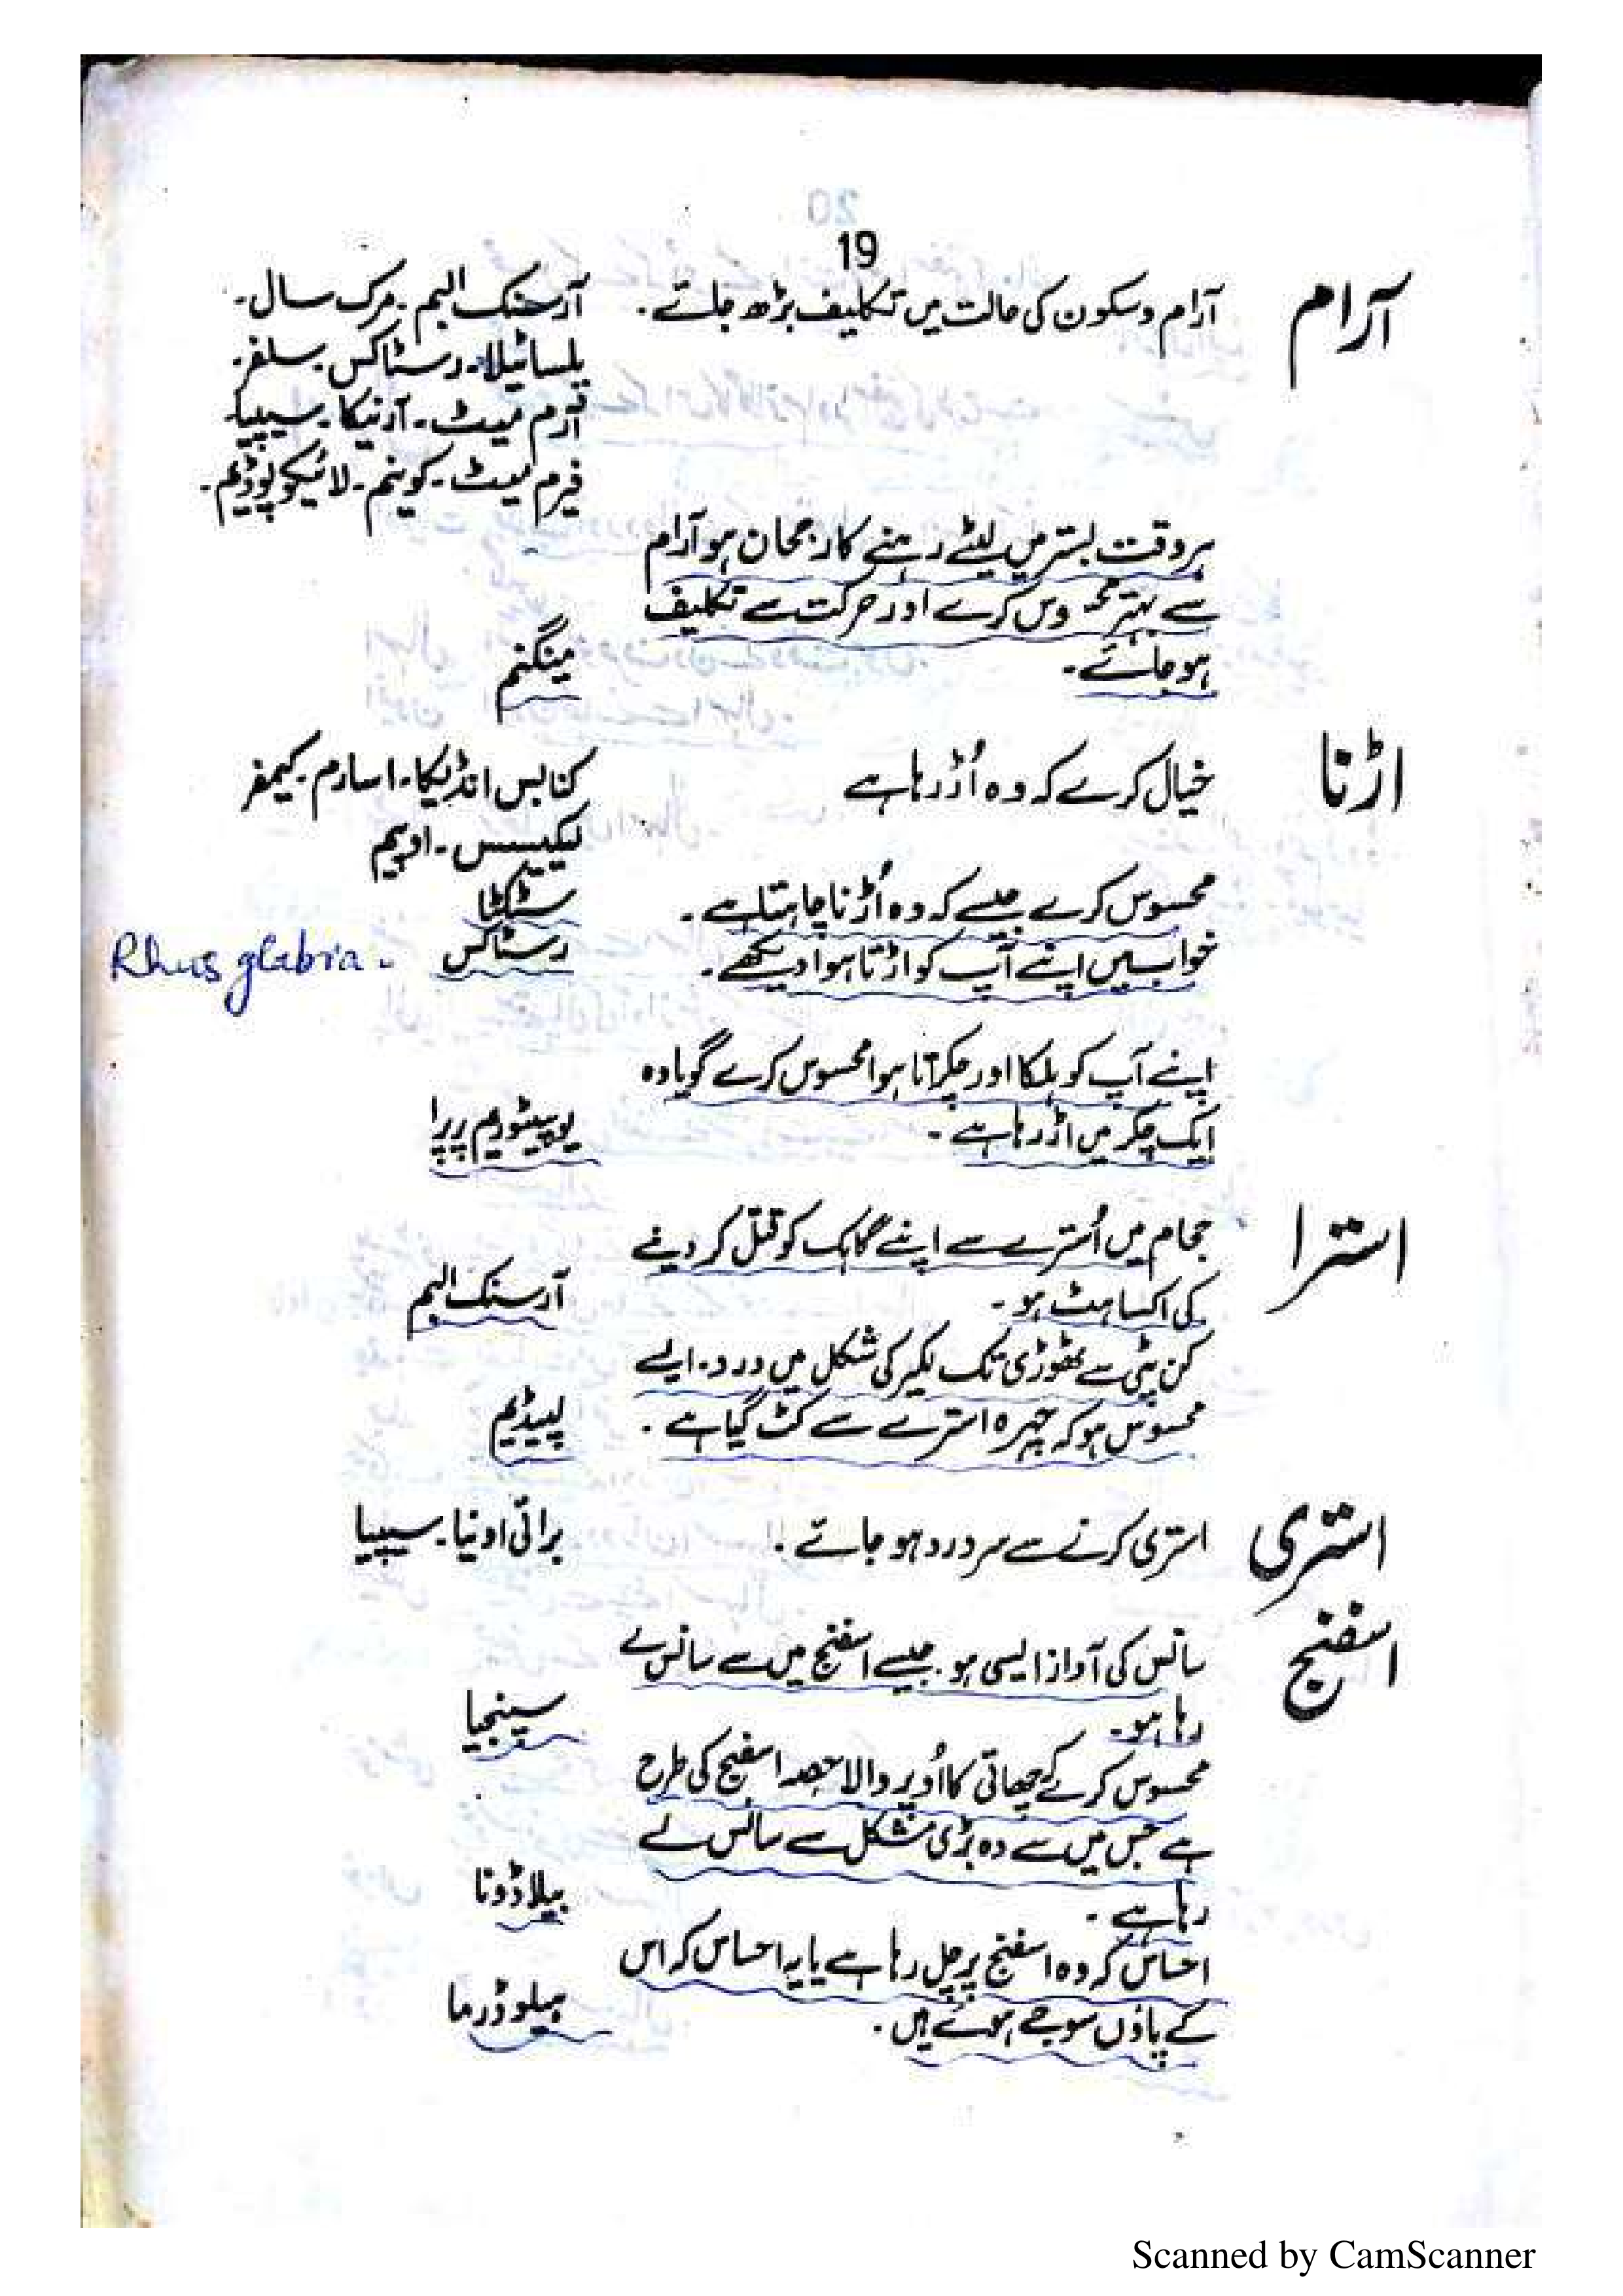 19
آرام آرام و سکون کی حالت میں تکلیف بڑھ جائے۔ آرسنک البم۔ مرک سال۔
پلساٹیلا۔ رسٹاکس۔ سلفر۔
آرم میٹ۔ آرنیکا۔ سیپیا۔
فیرم میٹ۔ کونیم۔ لائیکوپوڈیم۔
ہر وقت بستر میں لیٹے رہنے کا رجحان ہو آرام
سے بہتر محسوس کرے اور حرکت سے تکلیف
ہو جائے۔ مینگنم
اڑنا خیال کرے کہ وہ اُڑ رہا ہے کنابس انڈیکا۔ اسارم۔ کیمفر
لیکیسس۔ اوپیم
محسوس کرے جیسے کہ وہ اُڑنا چاہتا ہے۔ سٹکٹا
خواب میں اپنے آپ کو اڑتا ہوا دیکھے۔ رسٹاکس Rhus glabra.
اپنے آپ کو ہلکا اور چکراتا ہوا محسوس کرے گویا وہ
ایک چکر میں اڑ رہا ہے۔ یوپیٹوریم پرپرا
استرا حجام میں اُسترے سے اپنے گاہک کو قتل کر دینے
کی اکساہٹ ہو۔ آرسنک البم
کن پٹی سے ٹھوڑی تک لکیر کی شکل میں درد۔ ایسے
محسوس ہو کہ چہرہ استرے سے کٹ گیا ہے۔ لیپیڈیم
استری استری کرنے سے سر درد ہو جائے۔ برائی اونیا۔ سیپیا
اسفنج سانس کی آواز ایسی ہو۔ جیسے اسفنج میں سے سانس لے
رہا ہو۔ سپنجیا
محسوس کرے کہ چھاتی کا اُوپر والا حصہ اسفنج کی طرح
ہے جس میں سے وہ بڑی مشکل سے سانس لے
رہا ہے۔ بیلاڈونا
احساس کہ وہ اسفنج پر چل رہا ہے یا یہ احساس کہ اس
کے پاؤں سوجے ہوئے ہیں۔ ہیلوڈرما
Scanned by CamScanner